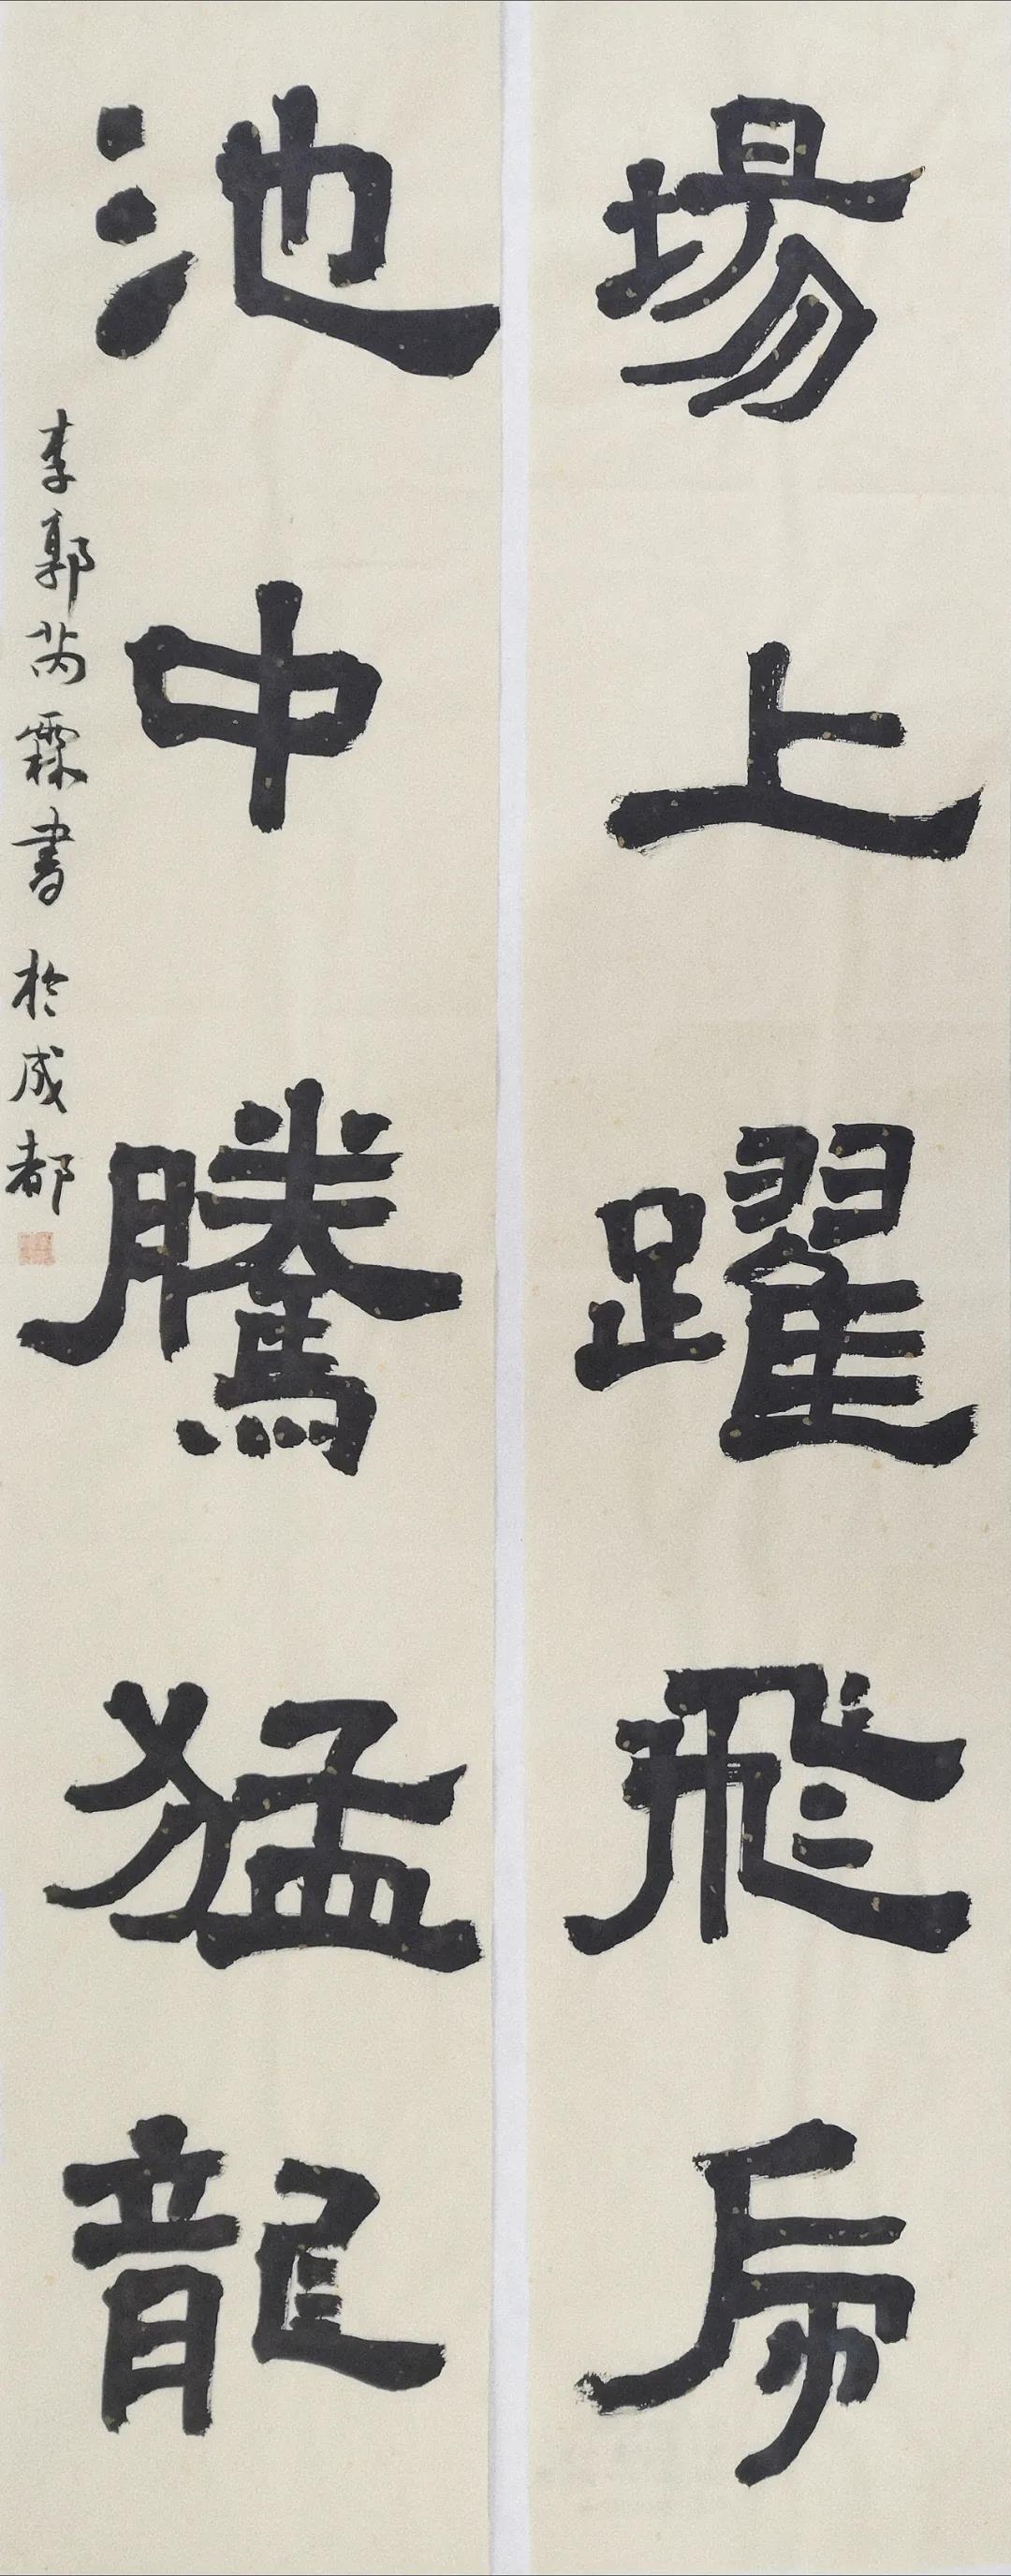 場上躍飛虎
池中騰猛龍
李郭芮霖書於成都